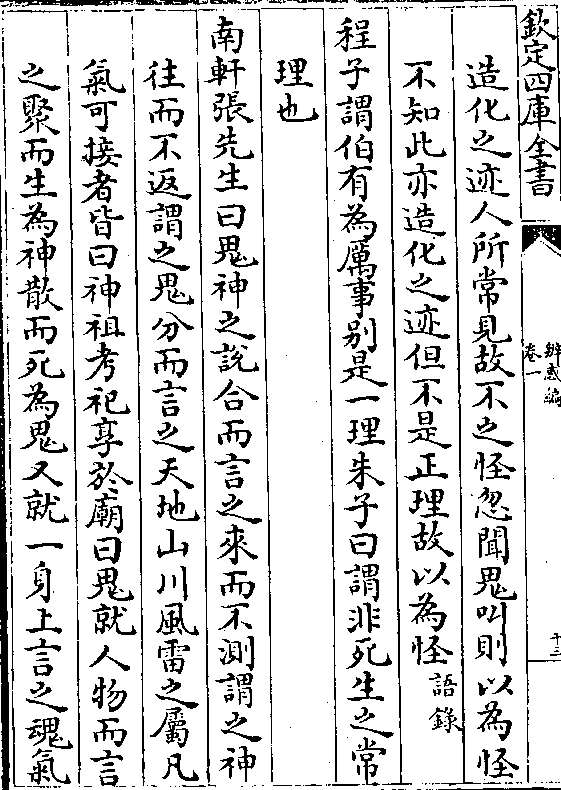 欽定四庫全書
辨惑編
卷一
十三
造化之迹人所常見故不之怪忽聞鬼叫則以為怪
不知此亦造化之迹但不是正理故以為怪語錄
程子謂伯有為厲事别是一理朱子曰謂非死生之常
理也
南軒張先生曰鬼神之說合而言之來而不測謂之神
往而不返謂之鬼分而言之天地山川風雷之屬凡
氣可接者皆曰神祖考祀享於廟曰鬼就人物而言
之聚而生為神散而死為鬼又就一身上言之魂氣